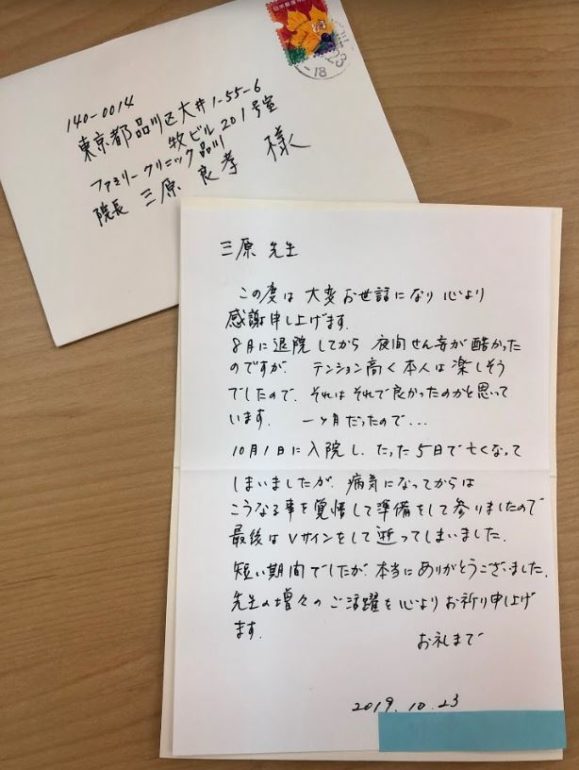 140-0014
東京都品川区大井1-55-6
牧ビル201号室
ファミリークリニック品川
院長 三原 良孝 様
三原 先生
この度は 大変お世話になり 心より
感謝申し上げます.
8月に退院してから 夜間せん妄が酷かった
のですが. テンション高く本人は楽しそう
でしたので. それは それで良かったのかと思って
います. 一ヶ月だったので...
10月1日に入院し. たった5日で亡くなって
しまいましたが. 病気になってからは
こうなる事を覚悟して準備をして参りましたので
最後は Vサインをして逝ってしまいました.
短い期間でしたが. 本当にありがとうございました.
先生の増々のご活躍を心よりお祈り申し上げ
ます.
お礼まで
2019.10.23